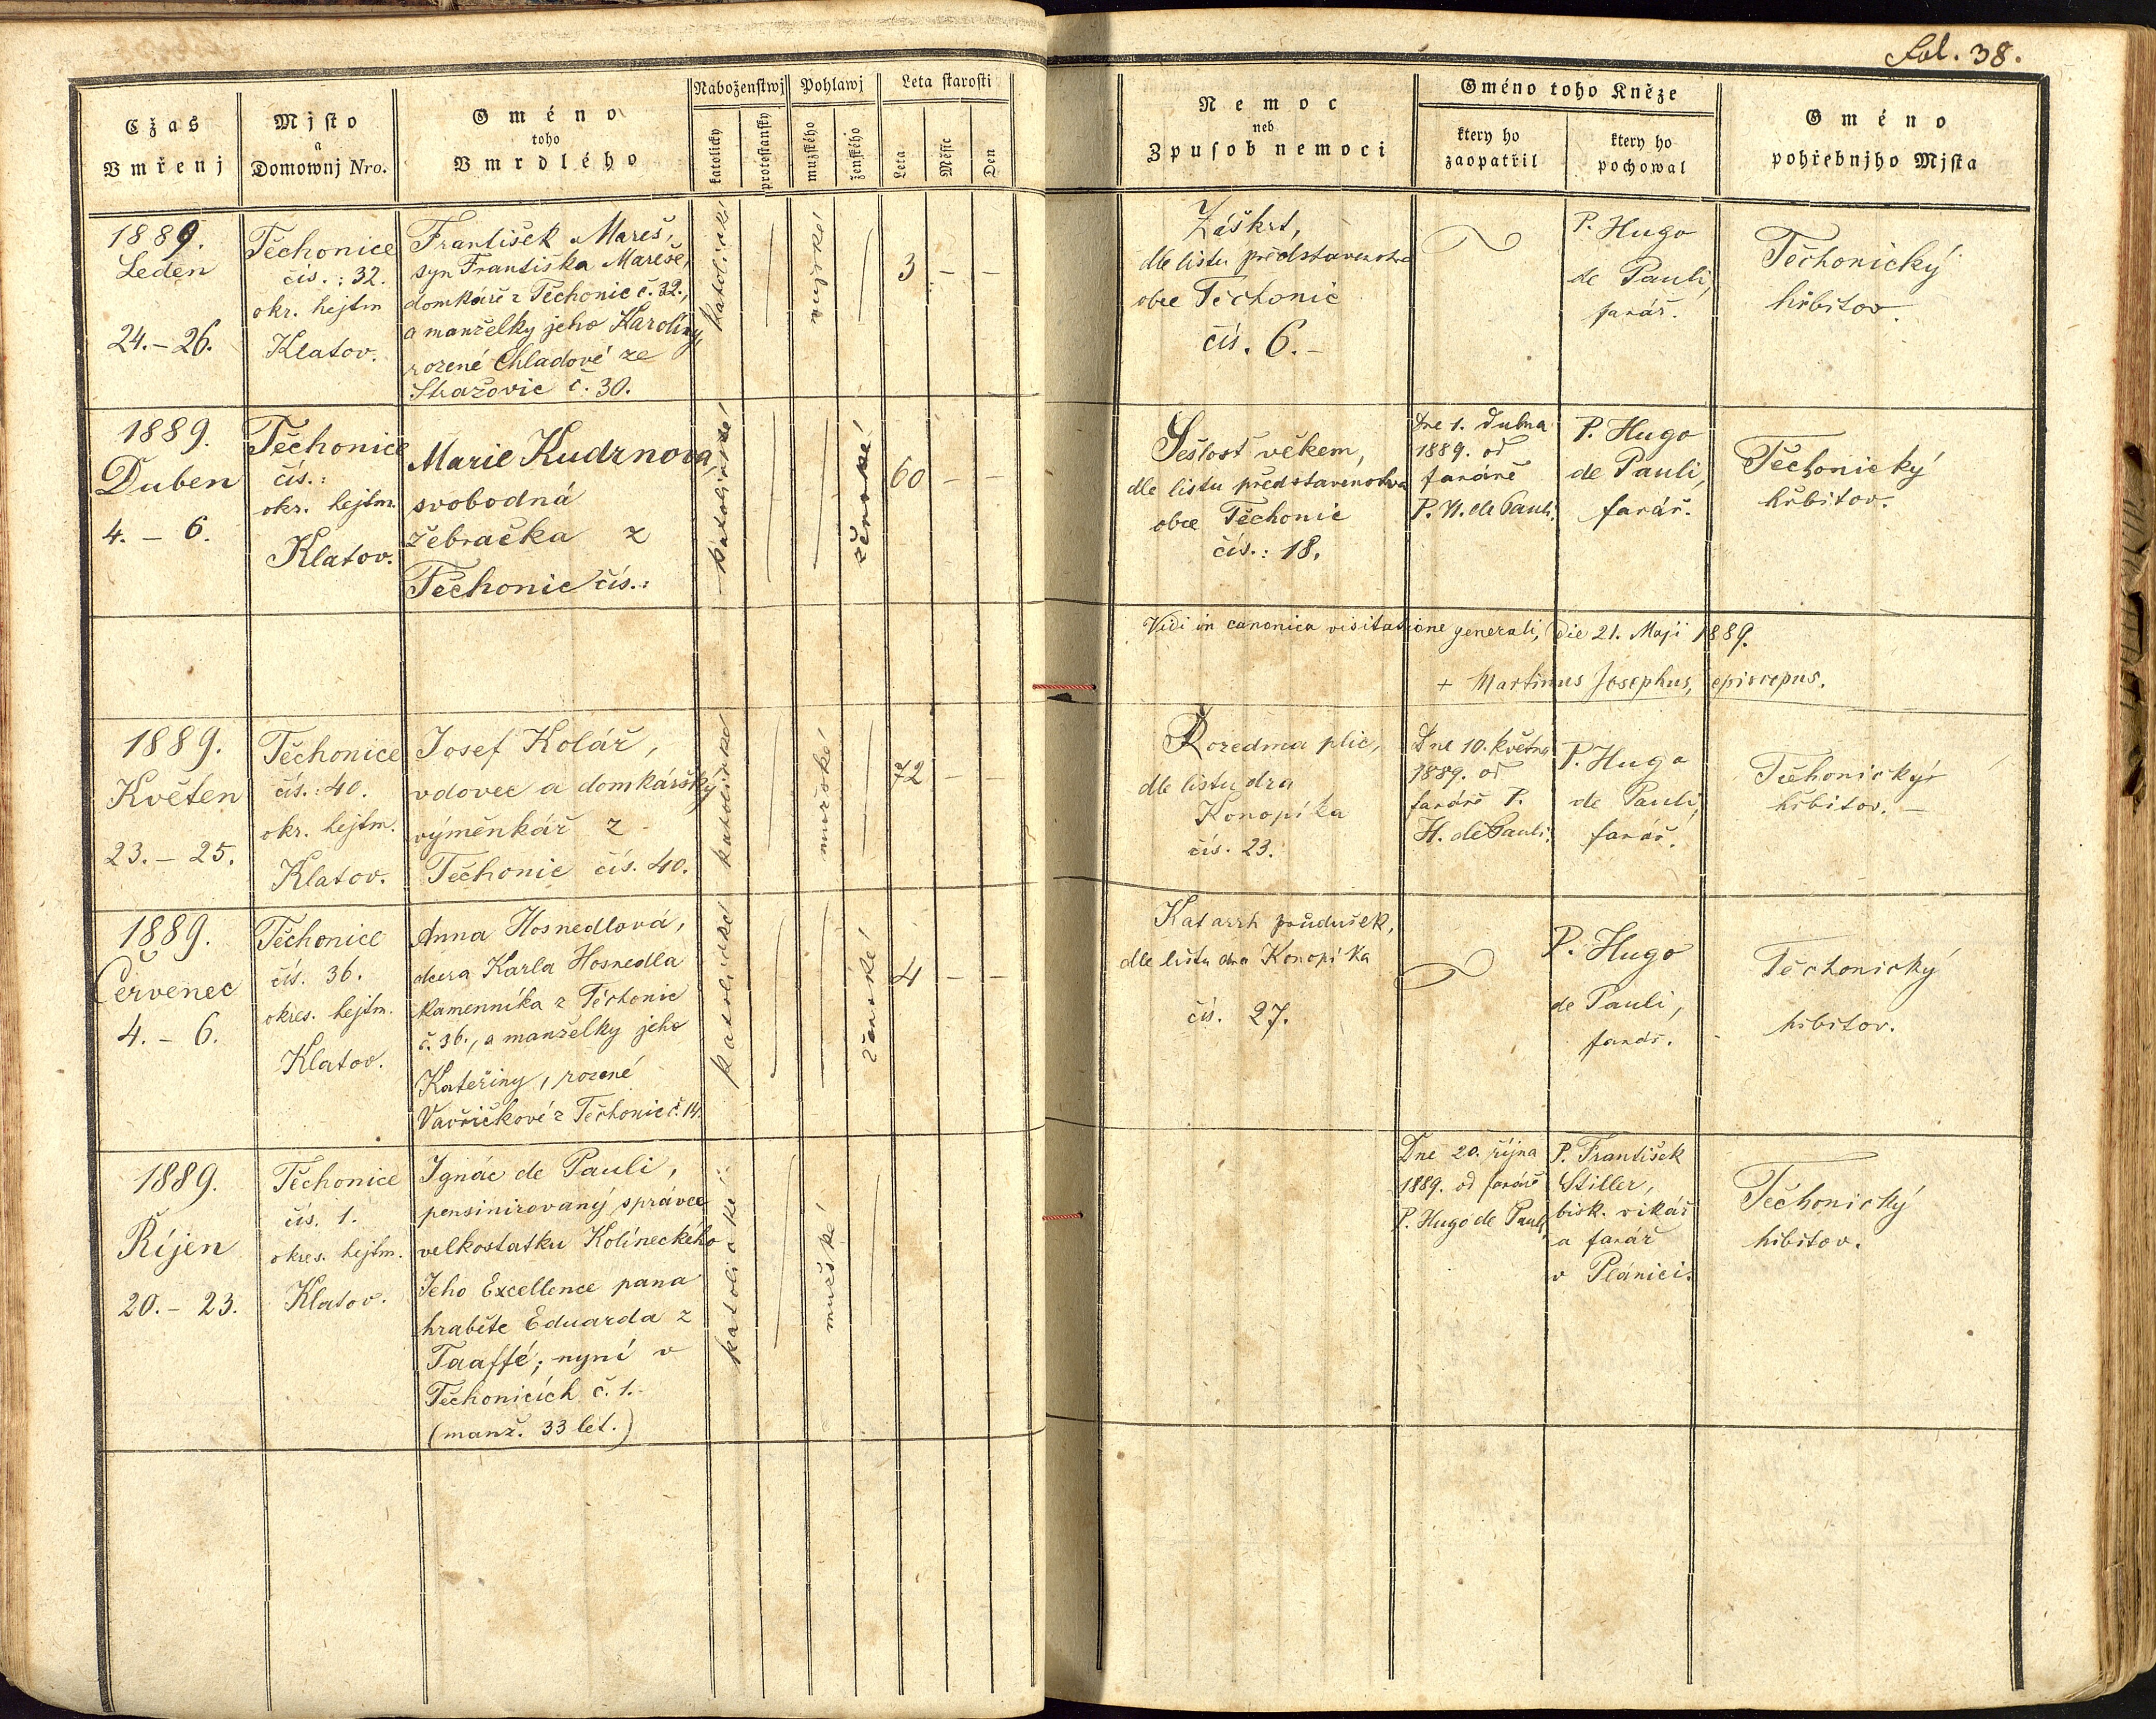 Fol. 38.
Cžas
Vmřenj
Mjsto
a
Domownj Nro.
Gméno
toho
Vmrdlého
Náboženstwj
katolicky
protostansky
Pohlawj
mužského
ženského
Leta starosti
Leta
Měsíc
Den
Nemoc
neb
Zpusob nemoci
Gméno toho Kněze
ktery ho
zaopatřil
ktery ho
pochowal
Gméno
pohřebnjho Mjsta
1889.
Leden
24. – 26.
Těchonice
čís.: 32.
okr. hejtm
Klatov.
František Mareš,
syn Františka Mareše,
domkáře z Těchonic č. 32.,
a manželky jeho Karoliny,
rozené Chladové ze
Stražovic č. 30.
katolické
mužské
3 – –
Záškrt,
dle listu představenstva
obce Těchonic
čís. 6. –
P. Hugo
de Pauli,
farář.
Těchonický
hřbitov.
1889.
Duben
4. – 6.
Těchonice
čís.:
okr. hejtm.
Klatov.
Marie Kudrnová,
svobodná
žebračka z
Těchonic čís.:
katolické
ženské
60 – –
Sešlost věkem,
dle listu představenstva
obce Těchonic
čís.: 18.
Dne 1. dubna
1889. od
faráře
P. H. de Pauli.
P. Hugo
de Pauli,
farář.
Těchonický
hřbitov.
Vidi in canonica visitatione generali, die 21. Maji 1889.
+ Martinus Josephus, episcopus.
1889.
Květen
23. – 25.
Těchonice
čís.: 40.
okr. hejtm.
Klatov.
Josef Kolář,
vdovec a domkářský
výměnkář z
Těchonic čís. 40.
katolické
mužské
72 – –
Rozedma plic,
dle listu dra
Konopíka
čís. 23.
Dne 10. května
1889. od
faráře P.
H. de Pauli.
P. Hugo
de Pauli,
farář.
Těchonický
hřbitov. –
1889.
Červenec
4. – 6.
Těchonice
čís. 36.
okres. hejtm.
Klatov.
Anna Hosnedlová,
dcera Karla Hosnedla
kamenníka z Těchonic
č. 36., a manželky jeho
Kateřiny, rozené
Vavřičkové z Těchonic č. 14.
katolické
ženské
4 – –
Katarrh průdušek,
dle listu dra Konopíka
čís. 27.
P. Hugo
de Pauli,
farář.
Těchonický
hřbitov.
1889.
Říjen
20. – 23.
Těchonice
čís. 1.
okres. hejtm.
Klatov.
Ignác de Pauli,
pensinirovaný správce
velkostatku Kolíneckého
Jeho Excellence pana
hraběte Eduarda z
Taaffé; nyní v
Těchonicích č. 1. –
(manž. 33 let.)
katolické
mužské
Dne 20. října
1889. od faráře
P. Hugo de Pauli,
P. František
Stiller,
bisk. vikář
a farář
v Plánici.
Těchonický
hřbitov.